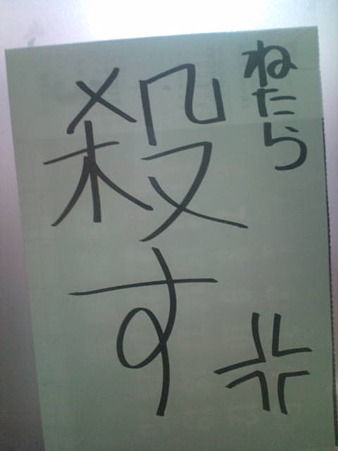 ねたら
殺す